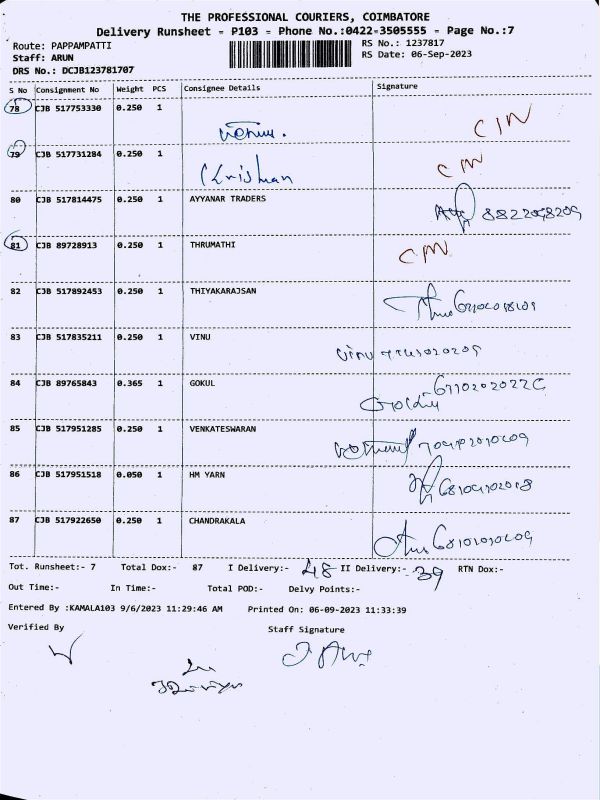 THE PROFESSIONAL COURIERS, COIMBATORE
Delivery Runsheet - P103 - Phone No.:0422-3505555 - Page No.:7
Route: PAPPAMPATTI
RS No.: 1237817
Staff: ARUN
RS Date: 06-Sep-2023
DRS No.: DCJB123781707
S No Consignment No Weight PCS Consignee Details Signature
78 CJB 517753330 0.250 1
CIN
79 CJB 517731284 0.250 1
Krishnan
80 CJB 517814475 0.250 1 AYYANAR TRADERS
81 CJB 89728913 0.250 1 THRUMATHI
82 CJB 517892453 0.250 1 THIYAKARAJSAN
83 CJB 517835211 0.250 1 VINU
84 CJB 89765843 0.365 1 GOKUL
85 CJB 517951285 0.250 1 VENKATESWARAN
86 CJB 517951518 0.050 1 HM YARN
87 CJB 517922650 0.250 1 CHANDRAKALA
Tot. Runsheet:- 7 Total Dox:- 87 I Delivery:- 48 II Delivery:- 39 RTN Dox:-
Out Time:- In Time:- Total POD:- Delvy Points:-
Entered By :KAMALA103 9/6/2023 11:29:46 AM Printed On: 06-09-2023 11:33:39
Verified By Staff Signature